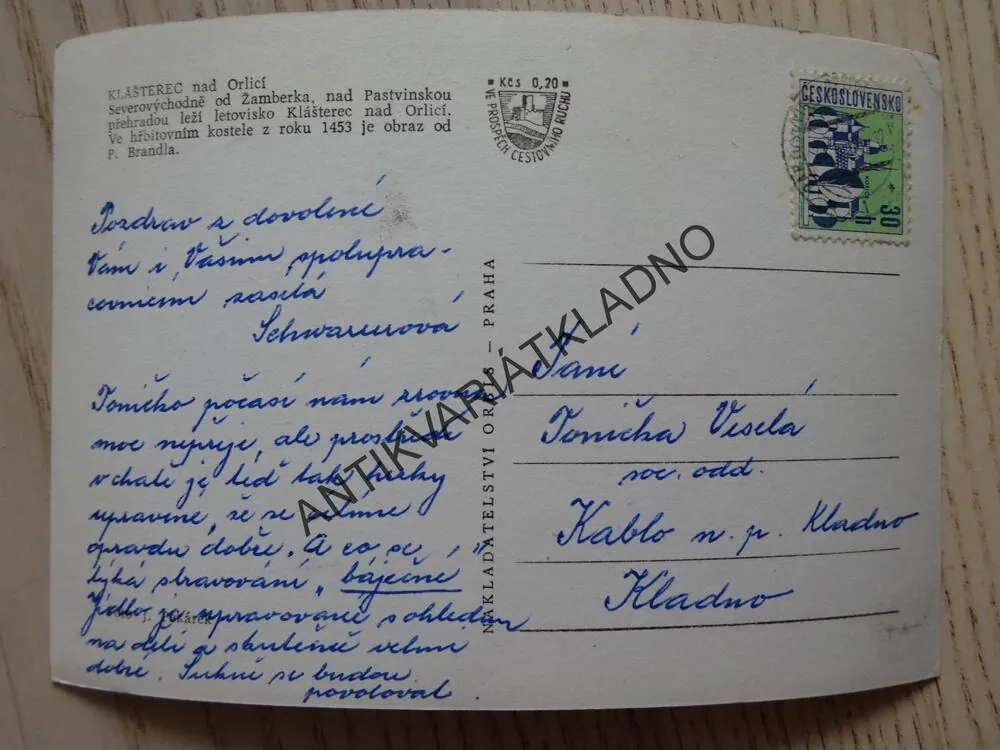 KLÁŠTEREC nad Orlicí
Severovýchodně od Žamberka, nad Pastvinskou
přehradou leží letovisko Klášterec nad Orlicí.
Ve hřbitovním kostele z roku 1453 je obraz od
P. Brandla.
Pozdrav z dovolené
Vám i Vašim spolupra-
covnicím zasílá
Schwarzrová
Toničko počasí nám zrovna
moc nepřeje, ale prostředí
v chatě je teď tak hezky
upravené, že se máme
opravdu dobře. A co se
týká stravování "báječné"
Jídlo je upravované s ohledem
na děti a skutečně velmi
dobré. Sukně se budou
povolovat.
J. Tukárek
Kčs 0,20
VE PROSPĚCH CESTOVNÍHO RUCHU
NAKLADATELSTVÍ ORBIS — PRAHA
ČESKOSLOVENSKO
30 h
Paní
Tonička Veselá
soc. odd.
Kablo n. p. Kladno
Kladno
ANTIKVARIÁTKLADNO